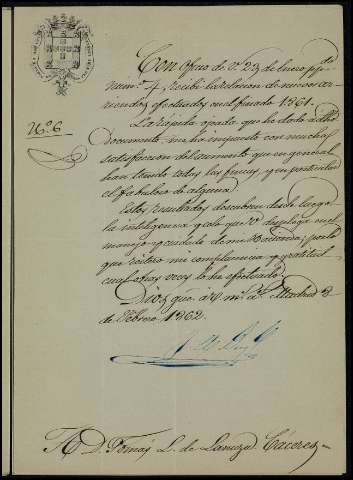 Nº. 6
Con oficio de V. 23 de Enero pp.do
num.º 4, recibí la relacion de nuevos ar-
riendos efectuados en el finado 1861.
La rápida ojeada que he dado a dho
documento, me ha impuesto con mucha
satisfaccion del aumento que en general
han tenido todas las fincas, y en particular
el fabuloso de alguna.
Estos resultados descubren desde luego
la inteligencia y celo que V. desplega en el
manejo y cuidado de mi Hacienda; por lo
que reitero mi complacencia y gratitud,
cual otras veces lo he efectuado.
Dios gue. á V. m.s a.s Madrid 8
de Febrero 1862
D. Tomás L. de Lanuza Cáceres